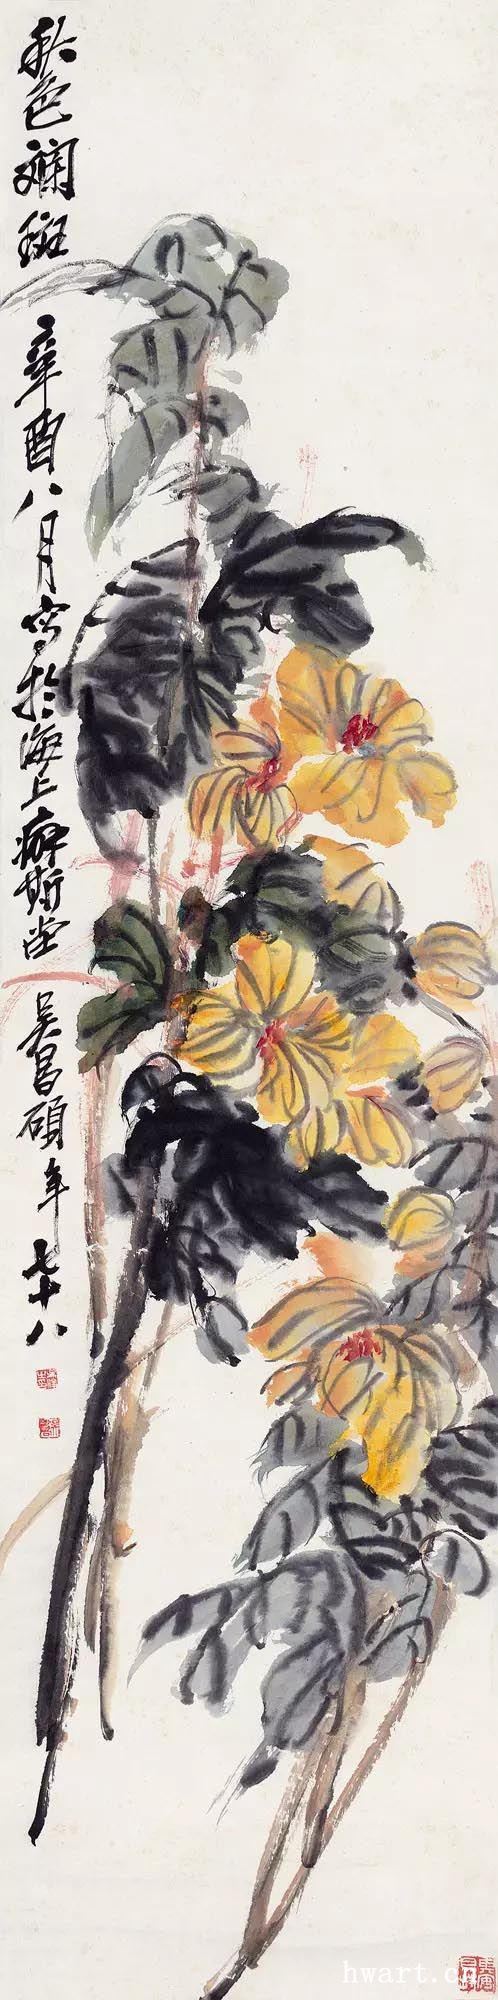 秋色斓斑 辛酉八月写於海上癖斯堂 吴昌硕年七十八
hwart.cn